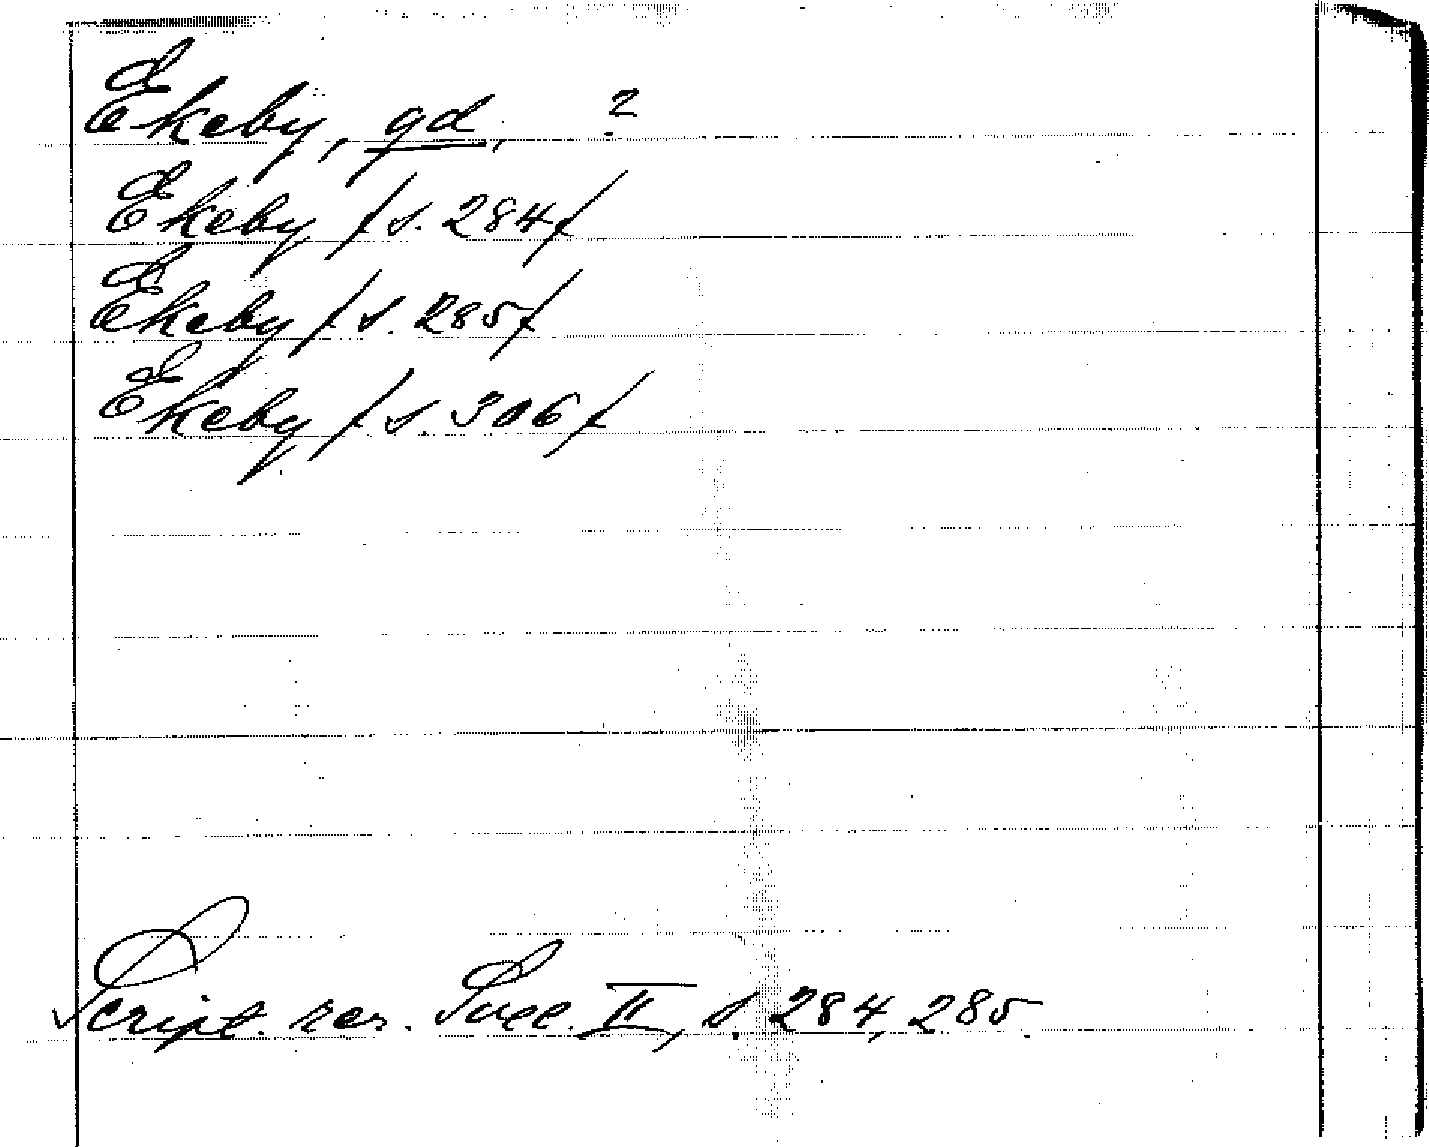 Ekeby, gd, ?
Ekeby /s. 284/
Ekeby /s. 285/
Ekeby /s. 306/
Script. rer. Svec. II, s. 284, 285.